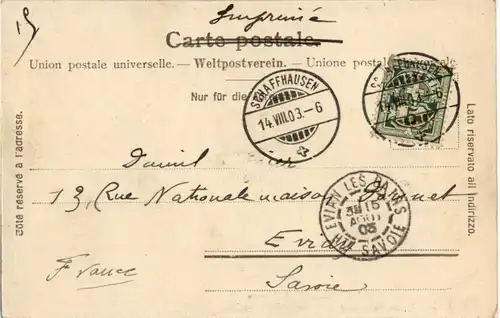 15
Imprimé
Carte postale.
Union postale universelle. — Weltpostverein. — Unione postale universale
Nur für die
SCHAFFHAUSEN
14.VIII.03.-6
14.VIII.03.-6
Côté réservé à l'adresse.
Lato riservato all indirizzo.
13, Rue Nationale maison
EVIAN LES BAINS
15
AOUT
03
Hte SAVOIE
Evian
France
Savoie